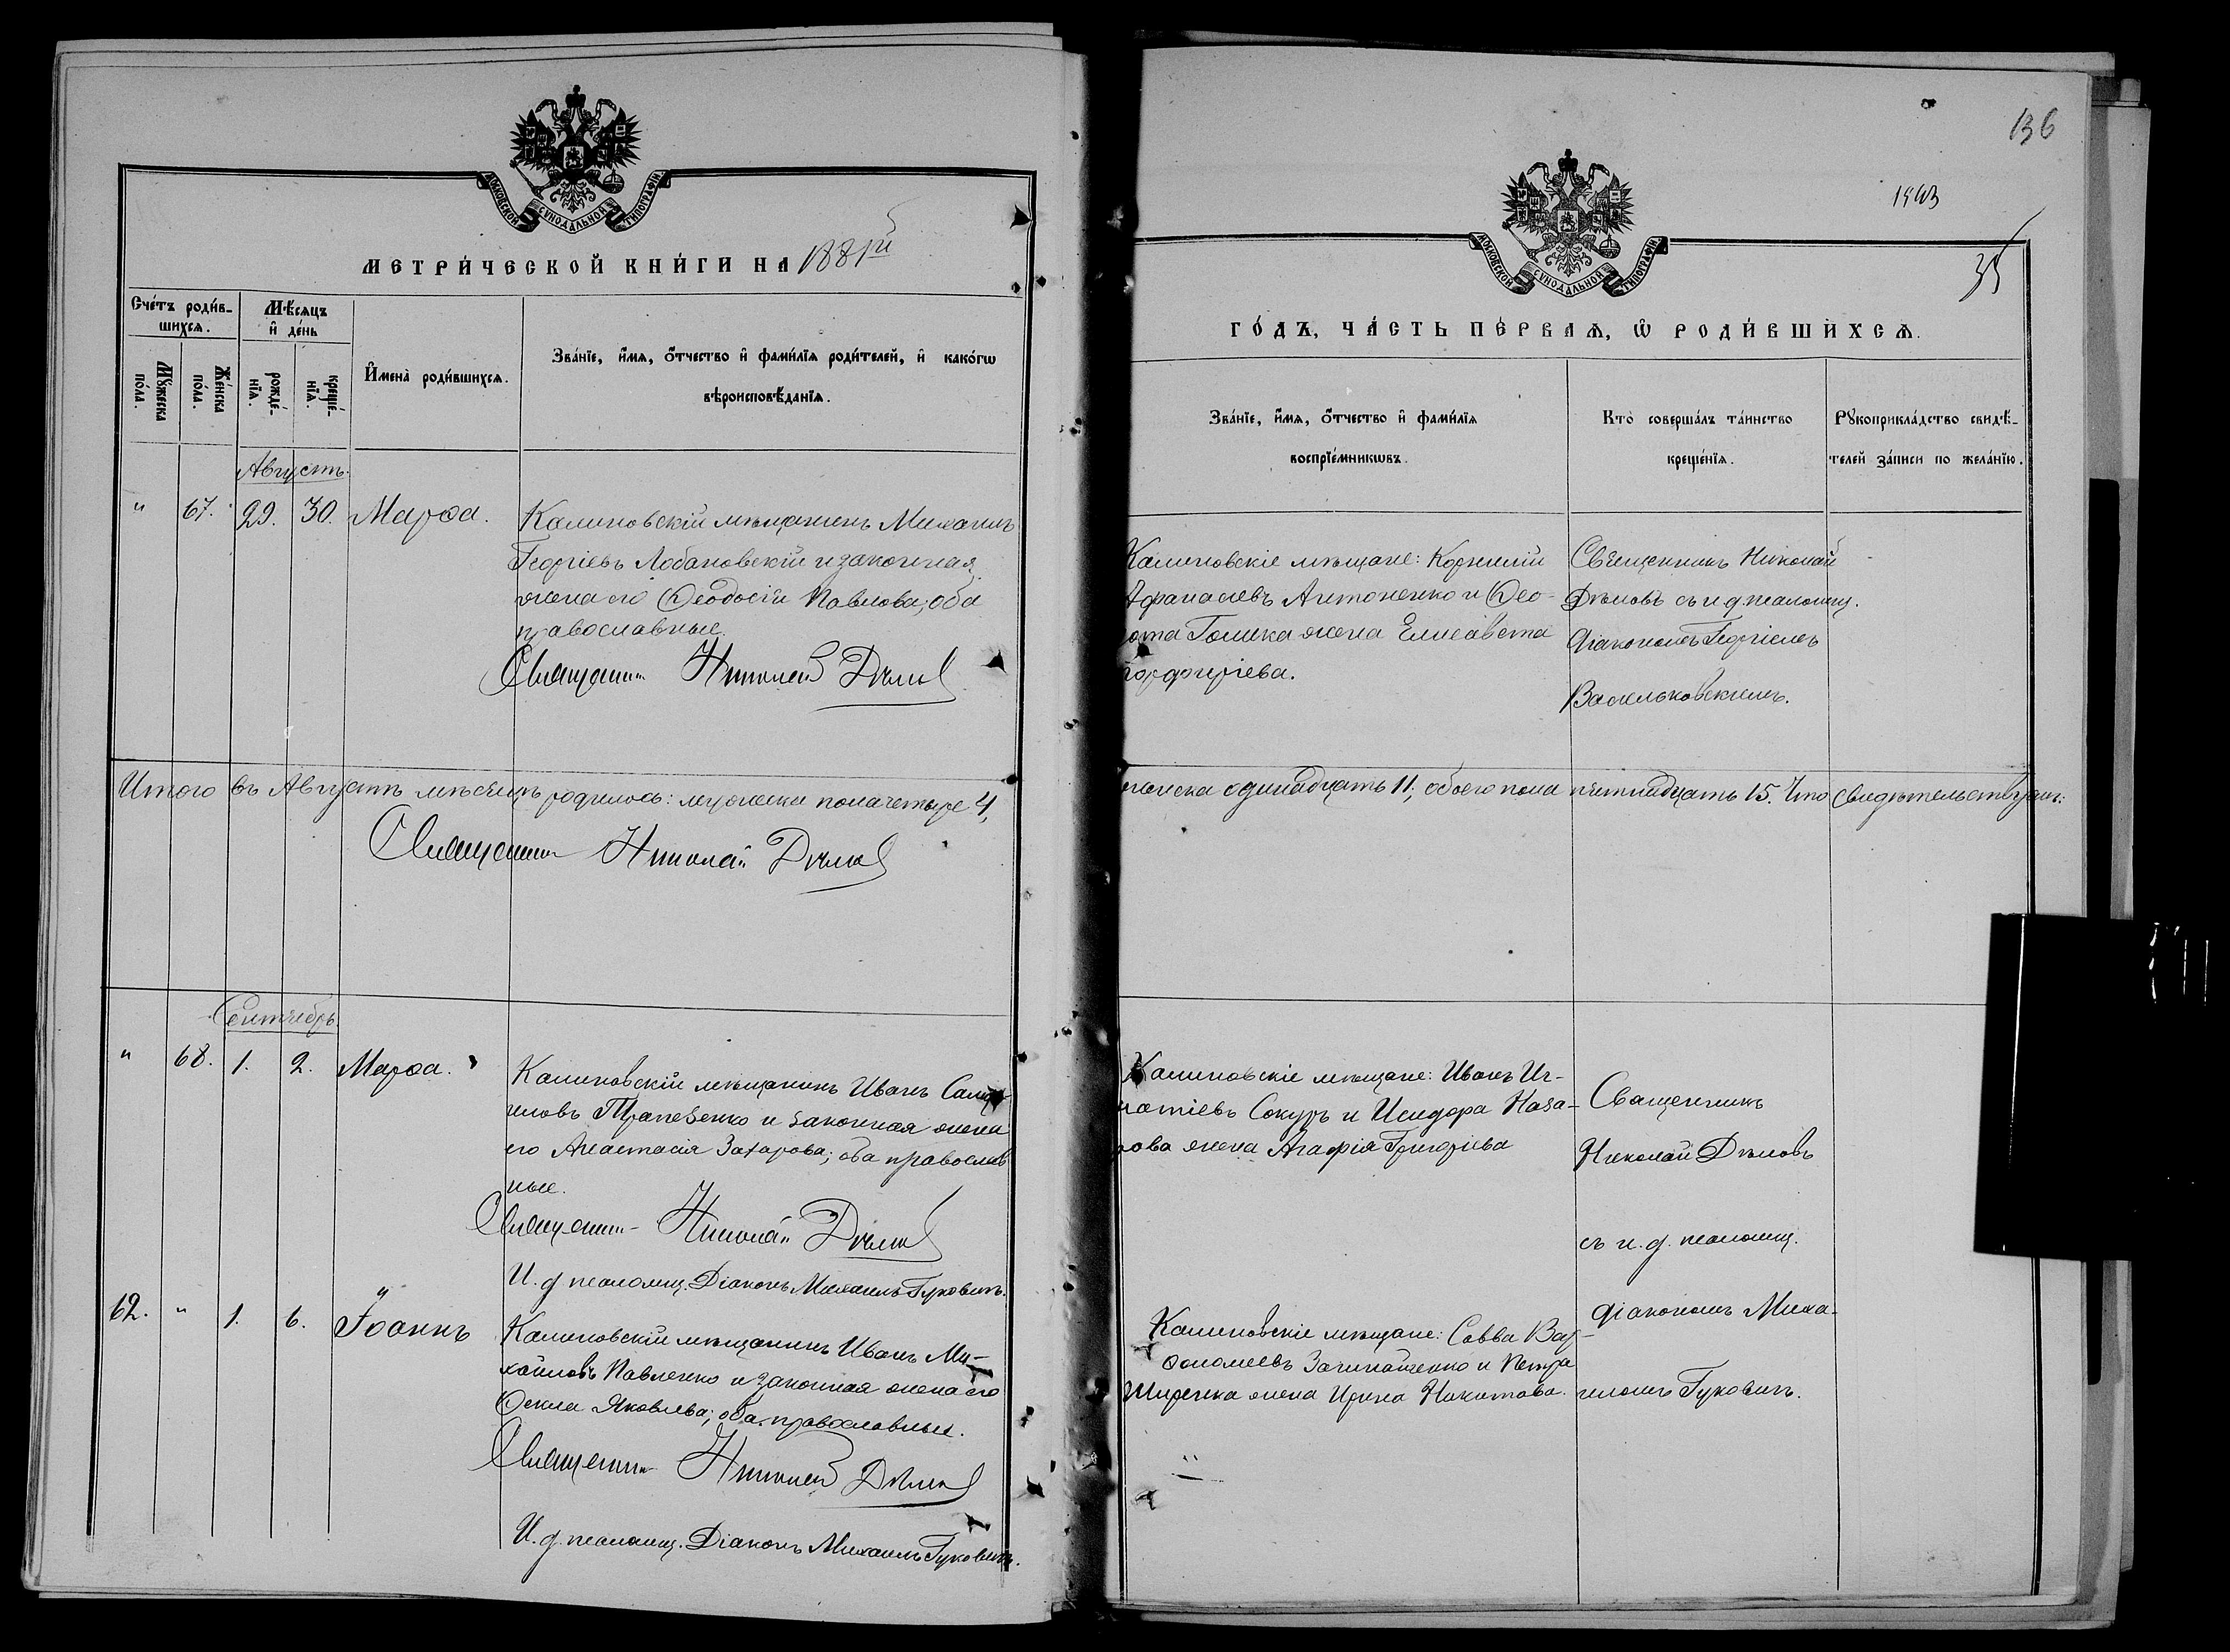 МОСКОВСКОЙ СѴНОДАЛЬНОЙ ТИПОГРАФІИ
МЕТРИ́ЧЕСКОЙ КНИ́ГИ НА 1881й
Сче́тъ роди́в-
шихсѧ.
Мѣ́сѧцъ
и҆ де́нь
Мꙋ́жеска
по́ла.
Же́нска
по́ла.
рожде́-
нїѧ.
креще́-
нїѧ.
И҆мена̀ роди́вшихсѧ.
Зва́нїе, и҆́мѧ, ѻ҆́тчество и҆ фами́лїѧ роди́телей, и҆ како́гѡ
вѣроисповѣ́данїѧ.
Августъ.
" 67. 29. 30. Марѳа.
Калиновскій мѣщанинъ Михаилъ
Георгіевъ Лобановскій и законная
жена его Ѳеодосія Павлова; оба
православные.
Священникъ Николай Дѣловъ
Итого въ Августѣ мѣсяцѣ родилось: мужеска пола четыре 4,
Священникъ Николай Дѣловъ
Сентябрь.
" 68. 1. 2. Марѳа.
Калиновскій мѣщанинъ Иванъ Самуи-
ловъ Трапезенко и законная жена
его Анастасія Захарова; оба православ
ные.
Священникъ Николай Дѣловъ
И. д. псаломщ. Діаконъ Михаилъ Гуковичъ.
62. " 1. 6. Іоаннъ
Калиновскій мѣщанинъ Иванъ Ми-
хайловъ Павленко и законная жена его
Ѳекла Яковлева; оба православные.
Священникъ Николай Дѣловъ
И. д. псаломщ. Діаконъ Михаилъ Гуковичъ.
136
35
МОСКОВСКОЙ СѴНОДАЛЬНОЙ ТИПОГРАФІИ
ГО́ДЪ, ЧА́СТЬ ПЕ́РВАѦ, Ѡ҆ РОДИ́ВШИХСѦ.
Зва́нїе, и҆́мѧ, ѻ҆́тчество и҆ фами́лїѧ
воспрїе́мникѡвъ.
Кто̀ соверша́лъ та́инство
креще́нїѧ.
Рꙋкоприкла́дство свидѣ́-
телей за́писи по жела́нїю.
Калиновскіе мѣщане: Корнилій
Афанасіевъ Антоненко и Ѳео-
дота Голика жена Елисавета
Порфиріева.
Священникъ Николай
Дѣловъ съ и д. псаломщ.
Діакономъ Георгіемъ
Васильковскимъ.
женска одинадцать 11, обоего пола пятнадцать 15. Что свидѣтельствуемъ:
Калиновскіе мѣщане: Иванъ Иг-
натіевъ Сокуръ и Исидора Наза-
рова жена Агафія Григоріева
Священникъ
Николай Дѣловъ
съ и. д. псаломщ.
діакономъ Миха-
иломъ Гуковичъ.
Калиновскіе мѣщане: Савва Вар-
ѳоломеевъ Зачинайченко и Петра
Ширенка жена Ирина Никитова.